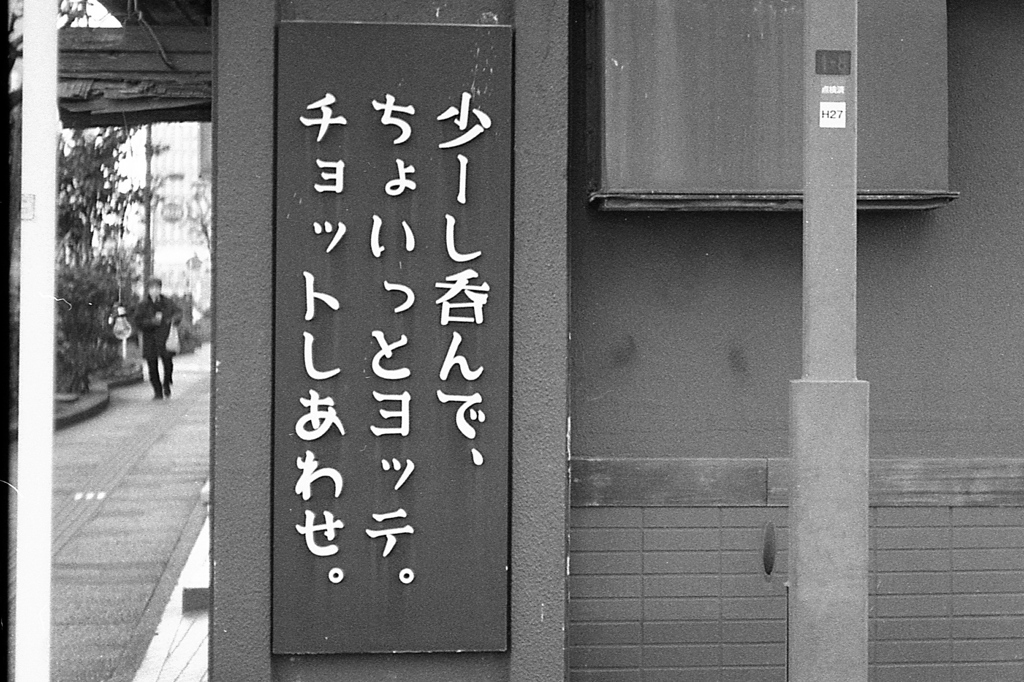 少ーし呑んで、
ちょいっとヨッテ。
チョットしあわせ。
1-8
点検済
H27